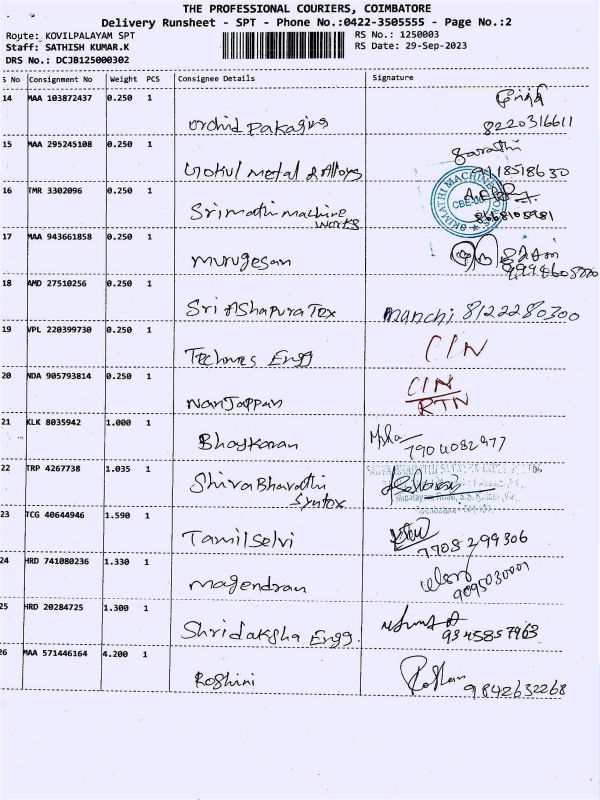 THE PROFESSIONAL COURIERS, COIMBATORE
Delivery Runsheet - SPT - Phone No.:0422-3505555 - Page No.:2
Route: KOVILPALAYAM SPT
RS No.: 1250003
Staff: SATHISH KUMAR.K
RS Date: 29-Sep-2023
DRS No.: DCJB125000302
S No Consignment No Weight PCS Consignee Details Signature
14 MAA 103872437 0.250 1
orchid Pakaging
8220316611
15 MAA 295245108 0.250 1
Sarathi
Gokul Metal & Alloys
16 TMR 3302096 0.250 1
SRIMATHI MACHINE WORKS
CBE
Srimathi machine
works
8668105981
17 MAA 943661858 0.250 1
murugesan
18 AMD 27510256 0.250 1
Sri AShapura Tex manchi 8122280300
19 VPL 220399730 0.250 1
CIN
Engg
20 NDA 905793814 0.250 1
CIN
RTN
NanJappan
21 KLK 8035942 1.000 1
Bhaskaran
7904082977
22 TRP 4267738 1.035 1
Shiva Bharathi
Syntex
23 TCG 40644946 1.590 1
Tamilselvi
7708299306
24 HRD 741080236 1.330 1
magendran
9095030001
25 HRD 20284725 1.300 1
Shridaksha Engg.
9345857963
26 MAA 571446164 4.200 1
Roshini
Roshan
9842632268